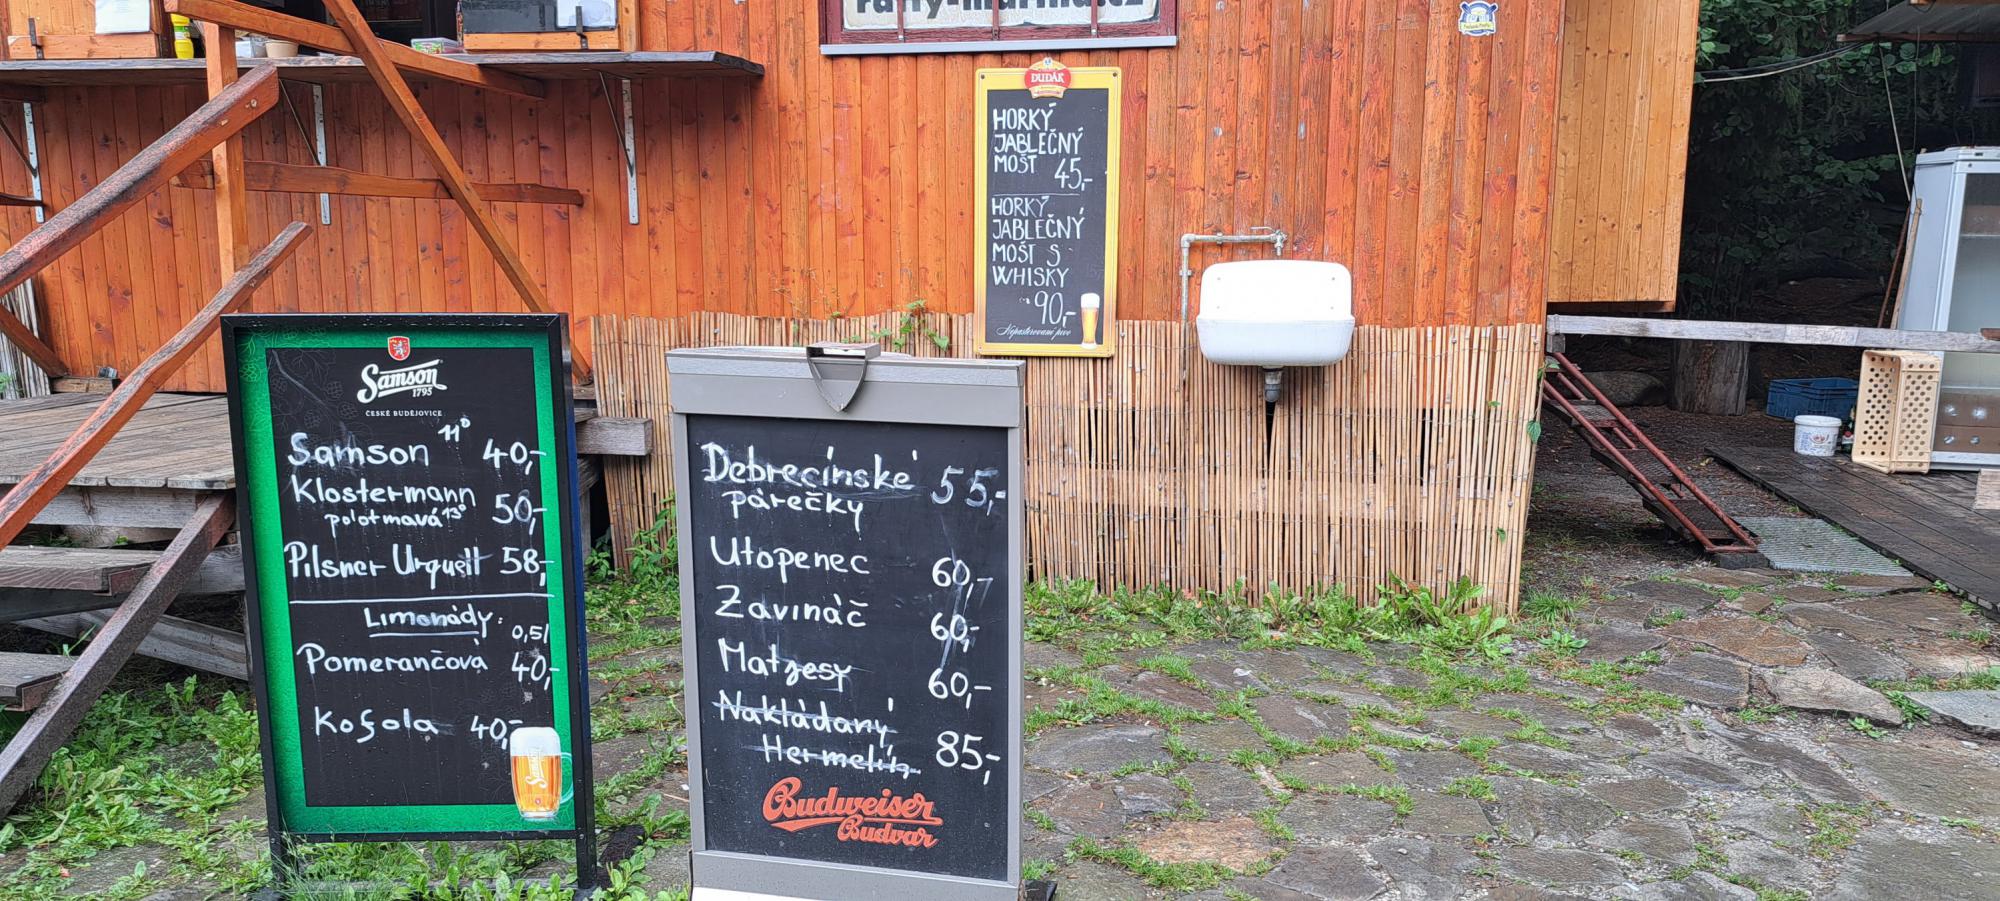 rally-marma.cz
DUDÁK
HORKÝ
JABLEČNÝ
MOŠT 45,-
HORKÝ
JABLEČNÝ
MOŠT S
WHISKY
90,-
Nepasterované pivo
Samson
1795
ČESKÉ BUDĚJOVICE
Samson 11° 40,-
Klostermann
polotmavá 13° 50,-
Pilsner Urquell 58,-
Limonády:
0,5l
Pomerančová 40,-
Kofola 40,-
Samson
Debrecínské 55,-
párečky
Utopenec 60,-
Zavináč 60,-
Matjesy 60,-
Nakládaný
Hermelín 85,-
Budweiser
Budvar